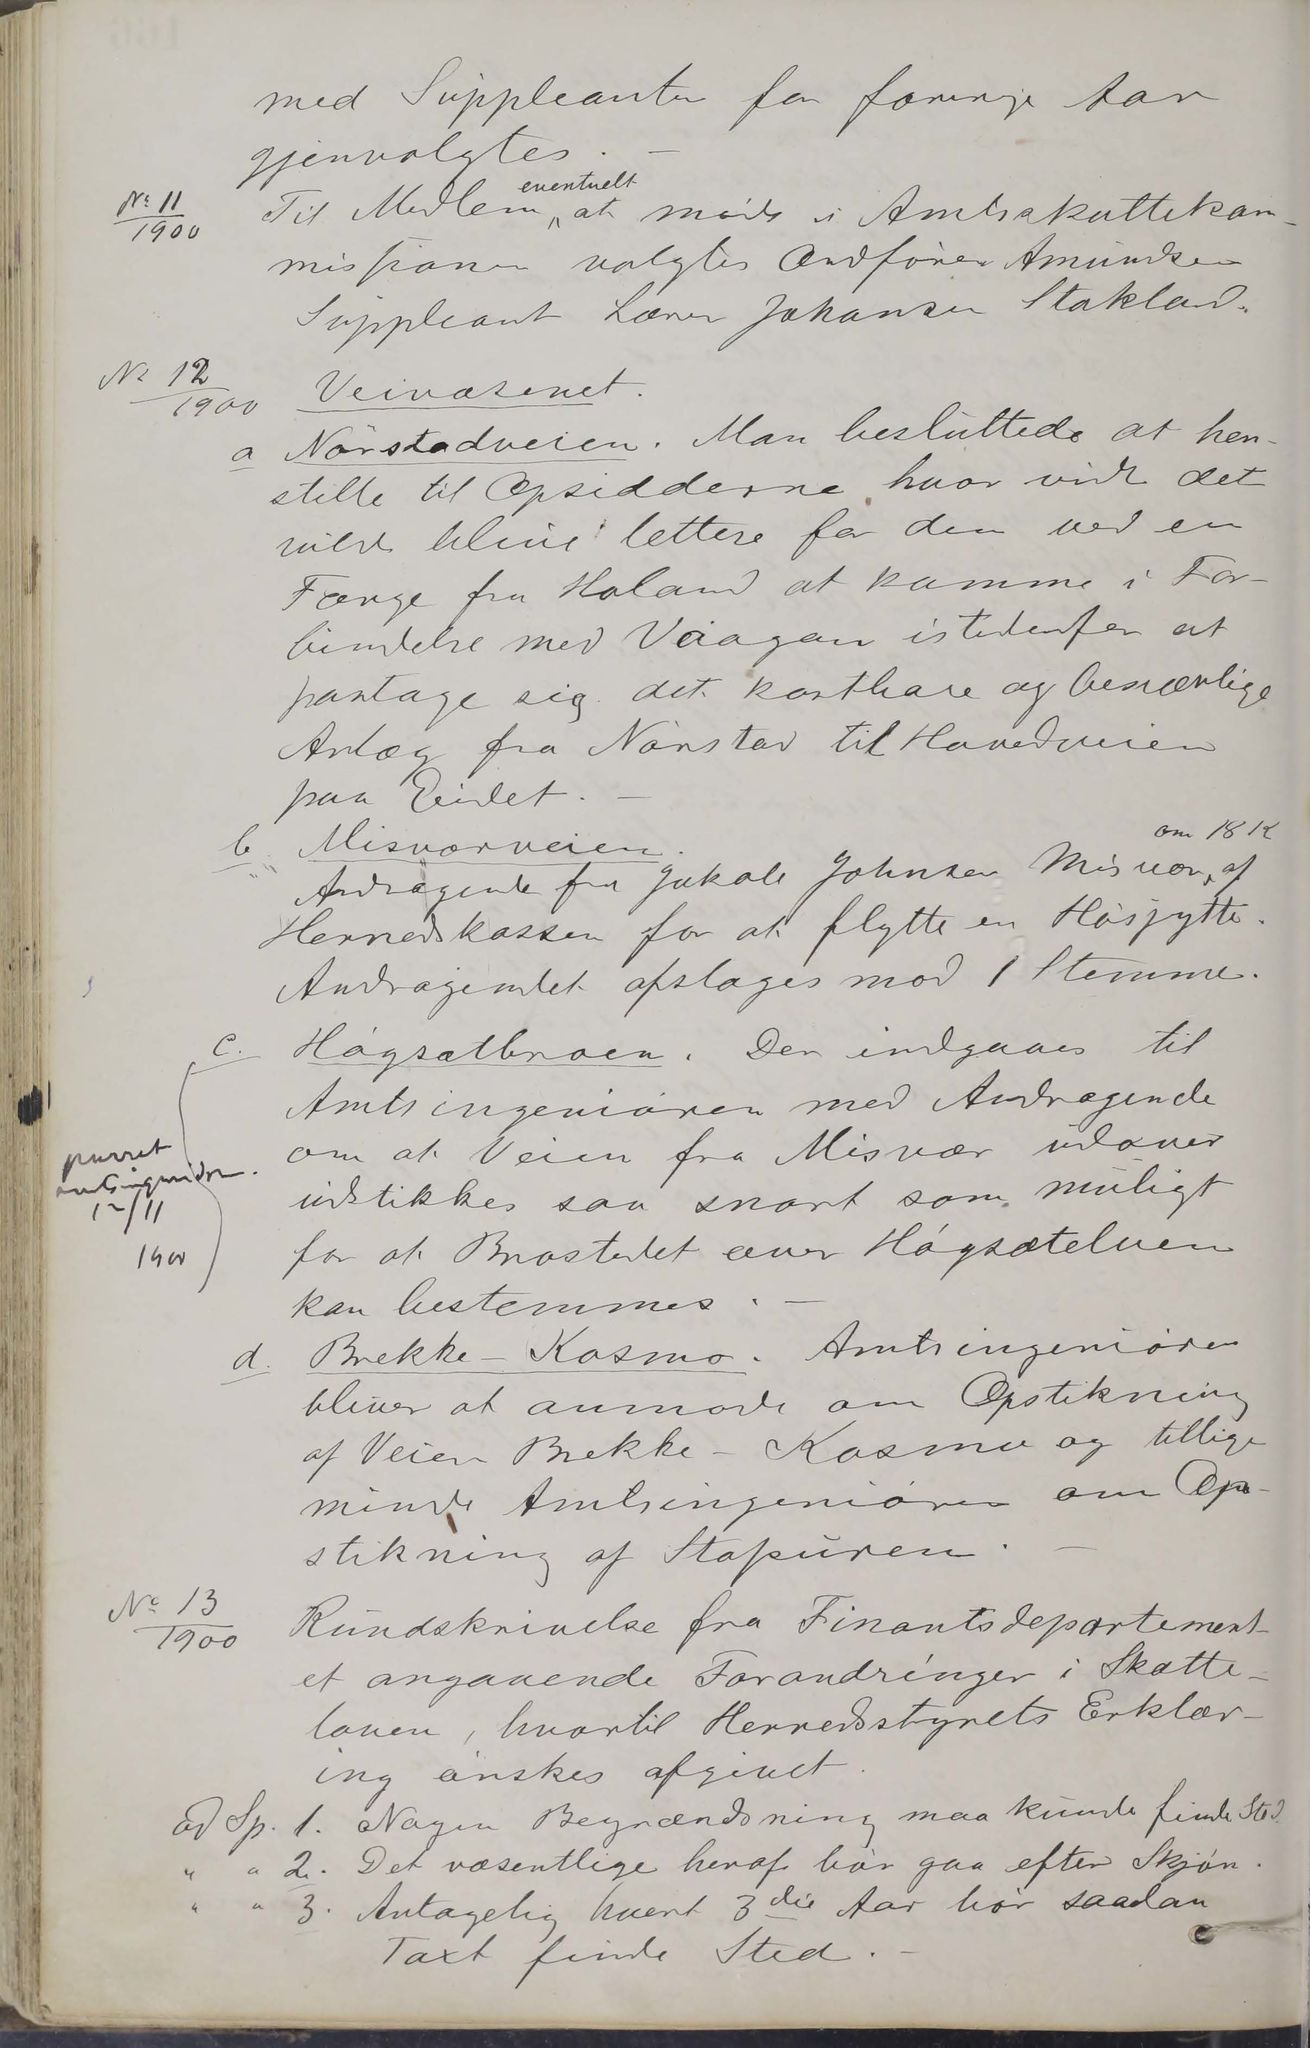 med Suppleanter for forrige Aar
gjenvalgtes. —
No 11
1900
Til Medlem eventuelt at møde i Amtsskattekom-
missionen valgtes Ordfører Amundsen
Suppleant Lærer Johansen Stokland.
No 12
1900
Veivæsenet.
a Nørstadveien. Man besluttede at hen-
stille til Opsidderne hvor vidt det
vilde blive lettere for dem ved en
Færge fra Holand at komme i For-
bindelse med Vaagan istedenfor at
paatage sig det kostbare og besværlige
Anlæg fra Nørstad til Hovedveien
paa Eidet. —
b. Misværveien.
Andragende fra Jakob Johnsen Misvær om 18 K af
Herredskassen for at flytte en Høsjytte.
Andragendet afslages mod 1 Stemme.
c. Høgsætbroen. Der indgaaes til
Amtsingeniøren med Andragende
om at Veien fra Misvær udover
udstikkes saa snart som muligt
for at Brostedet over Høgsætelven
kan bestemmes. —
purret
amtsingeniøren.
12/11
1900
d. Brekke - Kosmo. Amtsingeniøren
bliver at anmode om Opstikning
af Veien Brekke - Kosmo og tillige
minde Amtsingeniøren om Op-
stikning af Stopuren. —
No 13
1900
Rundskrivelse fra Finantsdepartement-
et angaaende Forandringer i Skatte-
loven, hvortil Herredsstyrets Erklær-
ing ønskes afgivet.
ad Sp. 1. Nogen Begrændsning maa kunde finde Sted
" " 2. Det væsentlige heraf bør gaa efter Skjøn.
" " 3. Antagelig hvert 3die Aar bør saadan
Taxt finde Sted. —